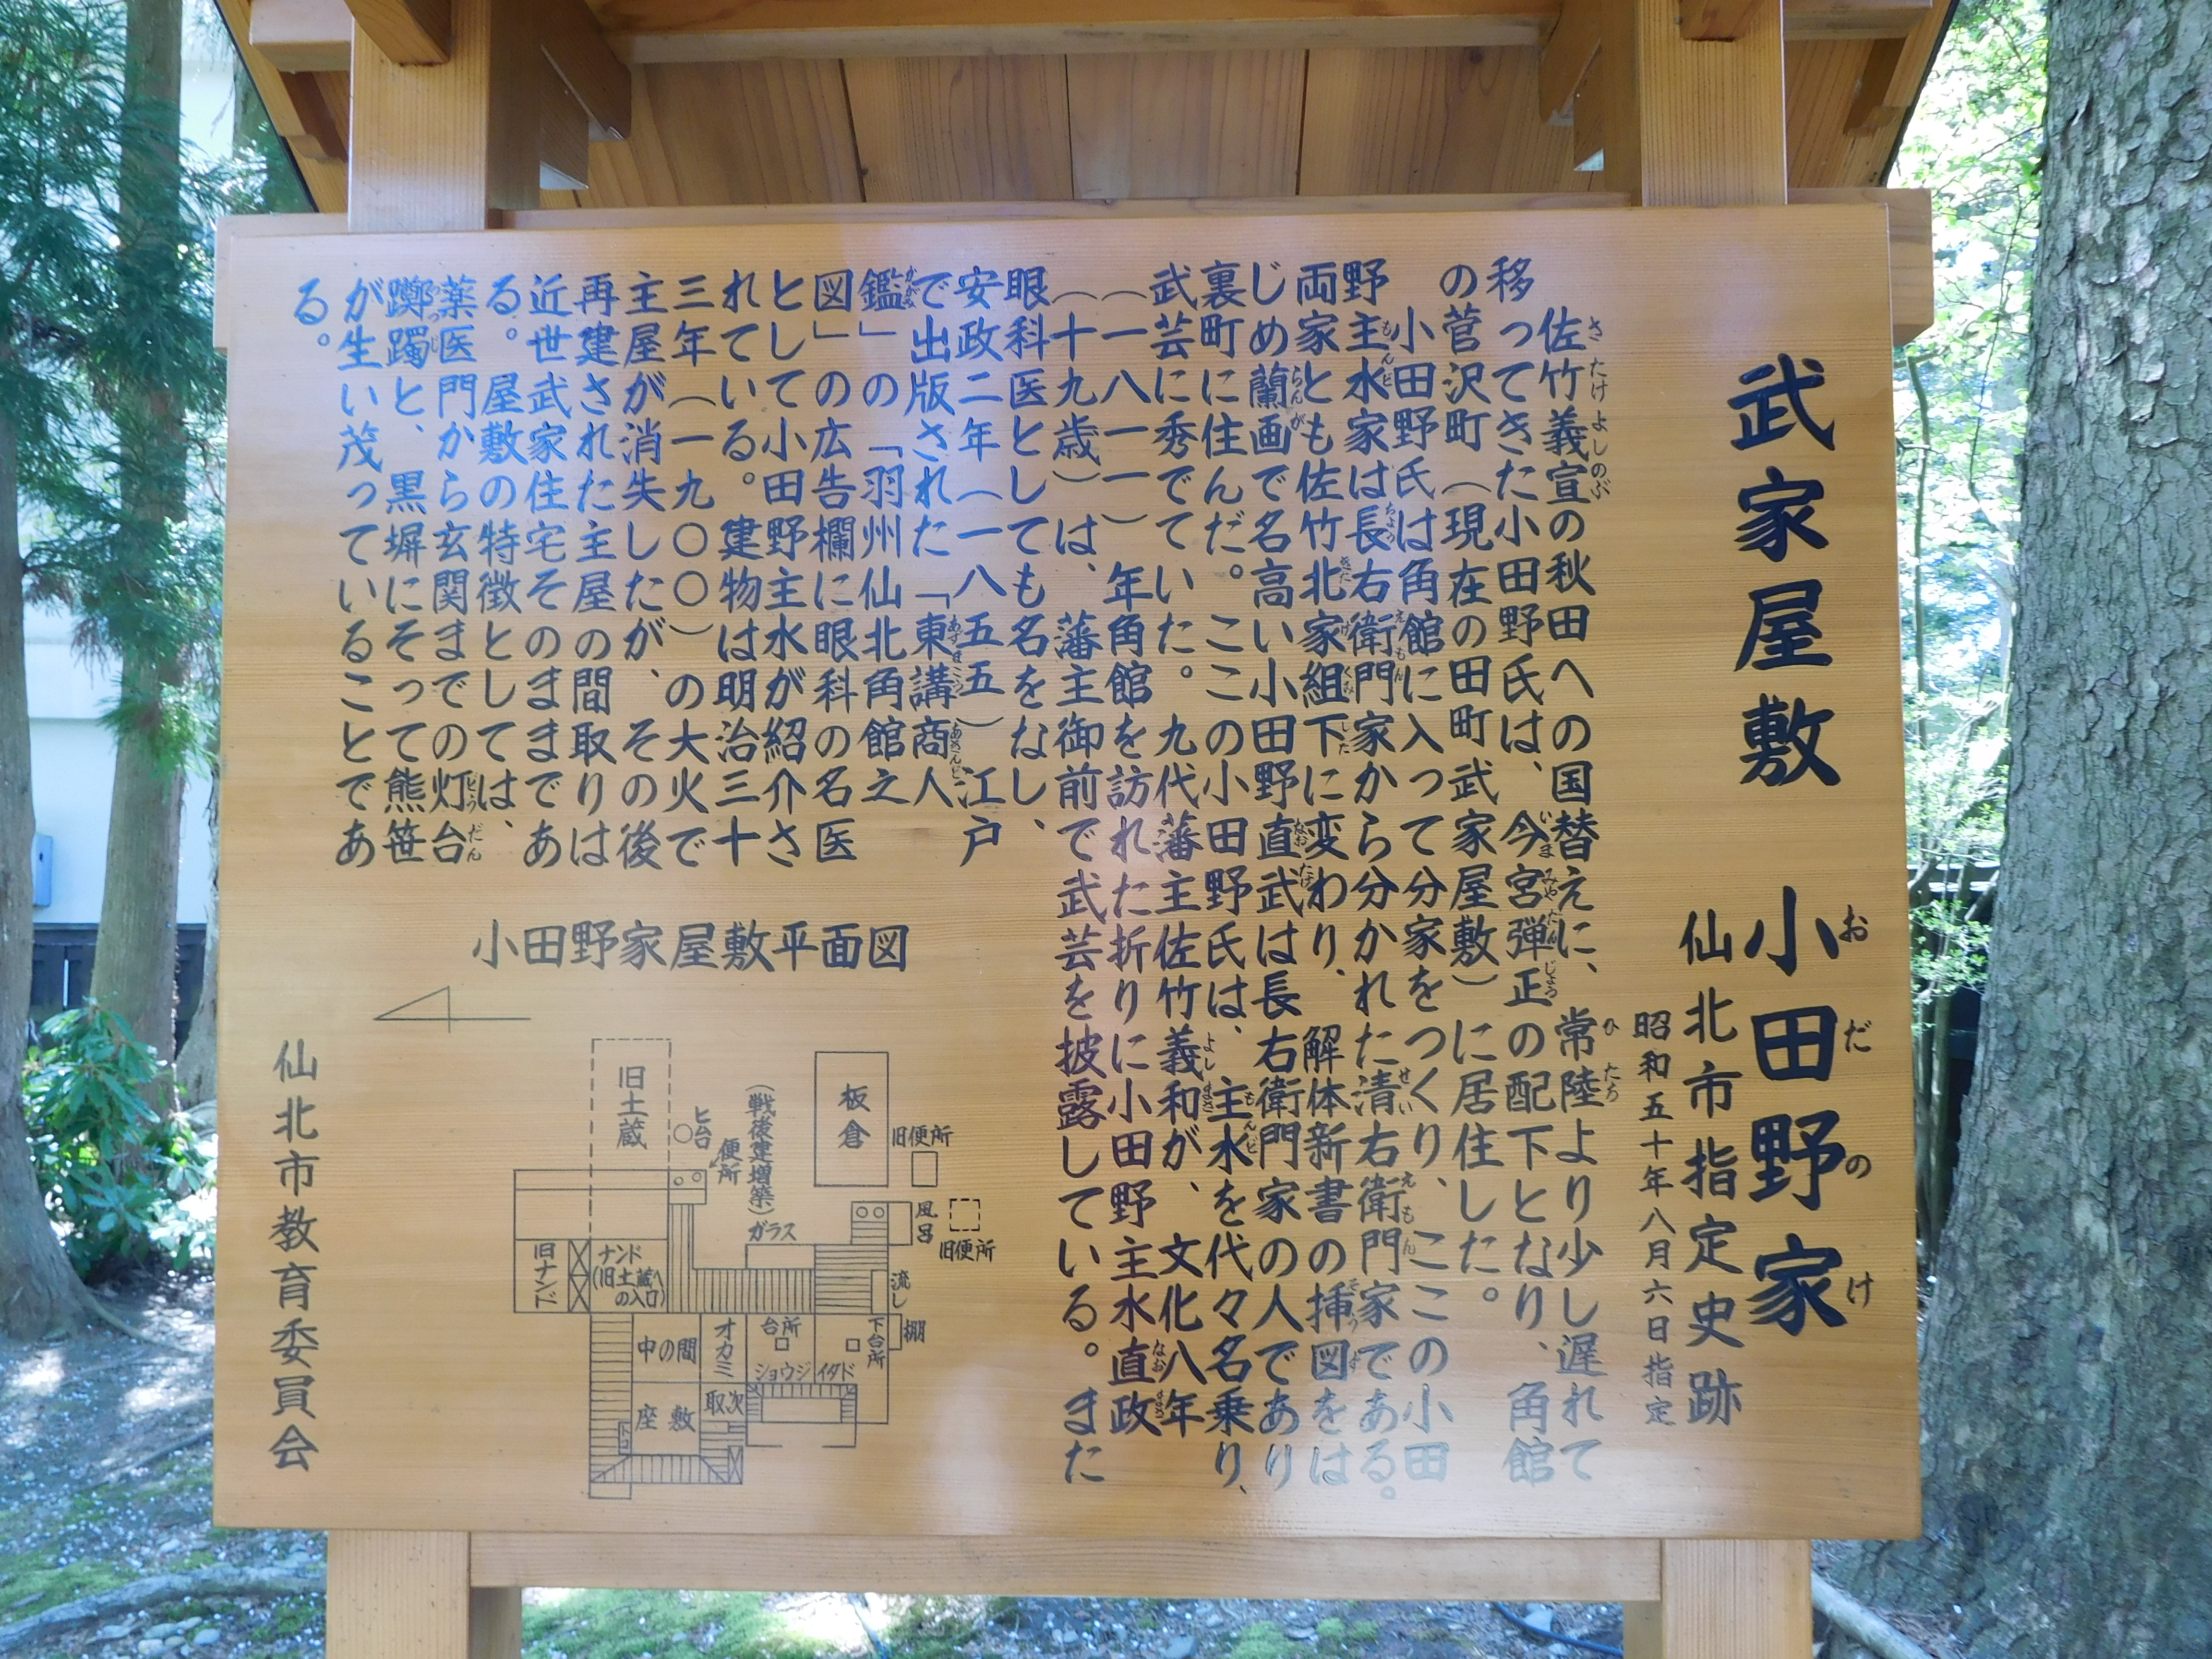 武家屋敷 小田野家
おだのけ
仙北市指定史跡
昭和五十年八月六日指定
佐竹義宣の秋田への国替えに、常陸より少し遅れて
移ってきた小田野氏は、今宮弾正の配下となり、角館
の菅沢町(現在の田町武家屋敷)に居住した。
小田野氏は角館に入って分家をつくり、ここの小田
野主水家は長右衛門家から分かれた清右衛門家である。
両家とも佐竹北家組下に変わり、解体新書の挿図をは
じめ蘭画で名高い小田野直武は長右衛門家の人であり
裏町に住んだ。ここの小田野氏は、主水を代々名乗り、
武芸に秀でていた。九代藩主佐竹義和が、文化八年
(一八一一)年角館を訪れた折りに小田野主水直政
(十九歳)は、藩主御前で武芸を披露している。また
眼科医としても名をなし、
安政二年(一八五五)江戸
で出版された「東講商人
鑑」の「羽州仙北角館之
図」の広告欄に眼科の名医
として小田野主水が紹介さ
れている。建物は明治三十
三年(一九〇〇)の大火で
主屋が消失したが、その後
再建された主屋の間取りは
近世武家住宅そのままであ
る。屋敷の特徴としては、
薬医門から玄関までの灯台
躑躅と、黒塀にそって熊笹
が生い茂っていることであ
る。
小田野家屋敷平面図
旧土蔵
ヒ台
便所
(戦後建増築)
板倉
旧便所
風呂
旧便所
ガラス
旧ナンド
ナンド
(旧土蔵へ
の入口)
流し
棚
中の間
オカミ
台所
下台所
ショウジ
イタド
座敷
取次
トコ
仙北市教育委員会